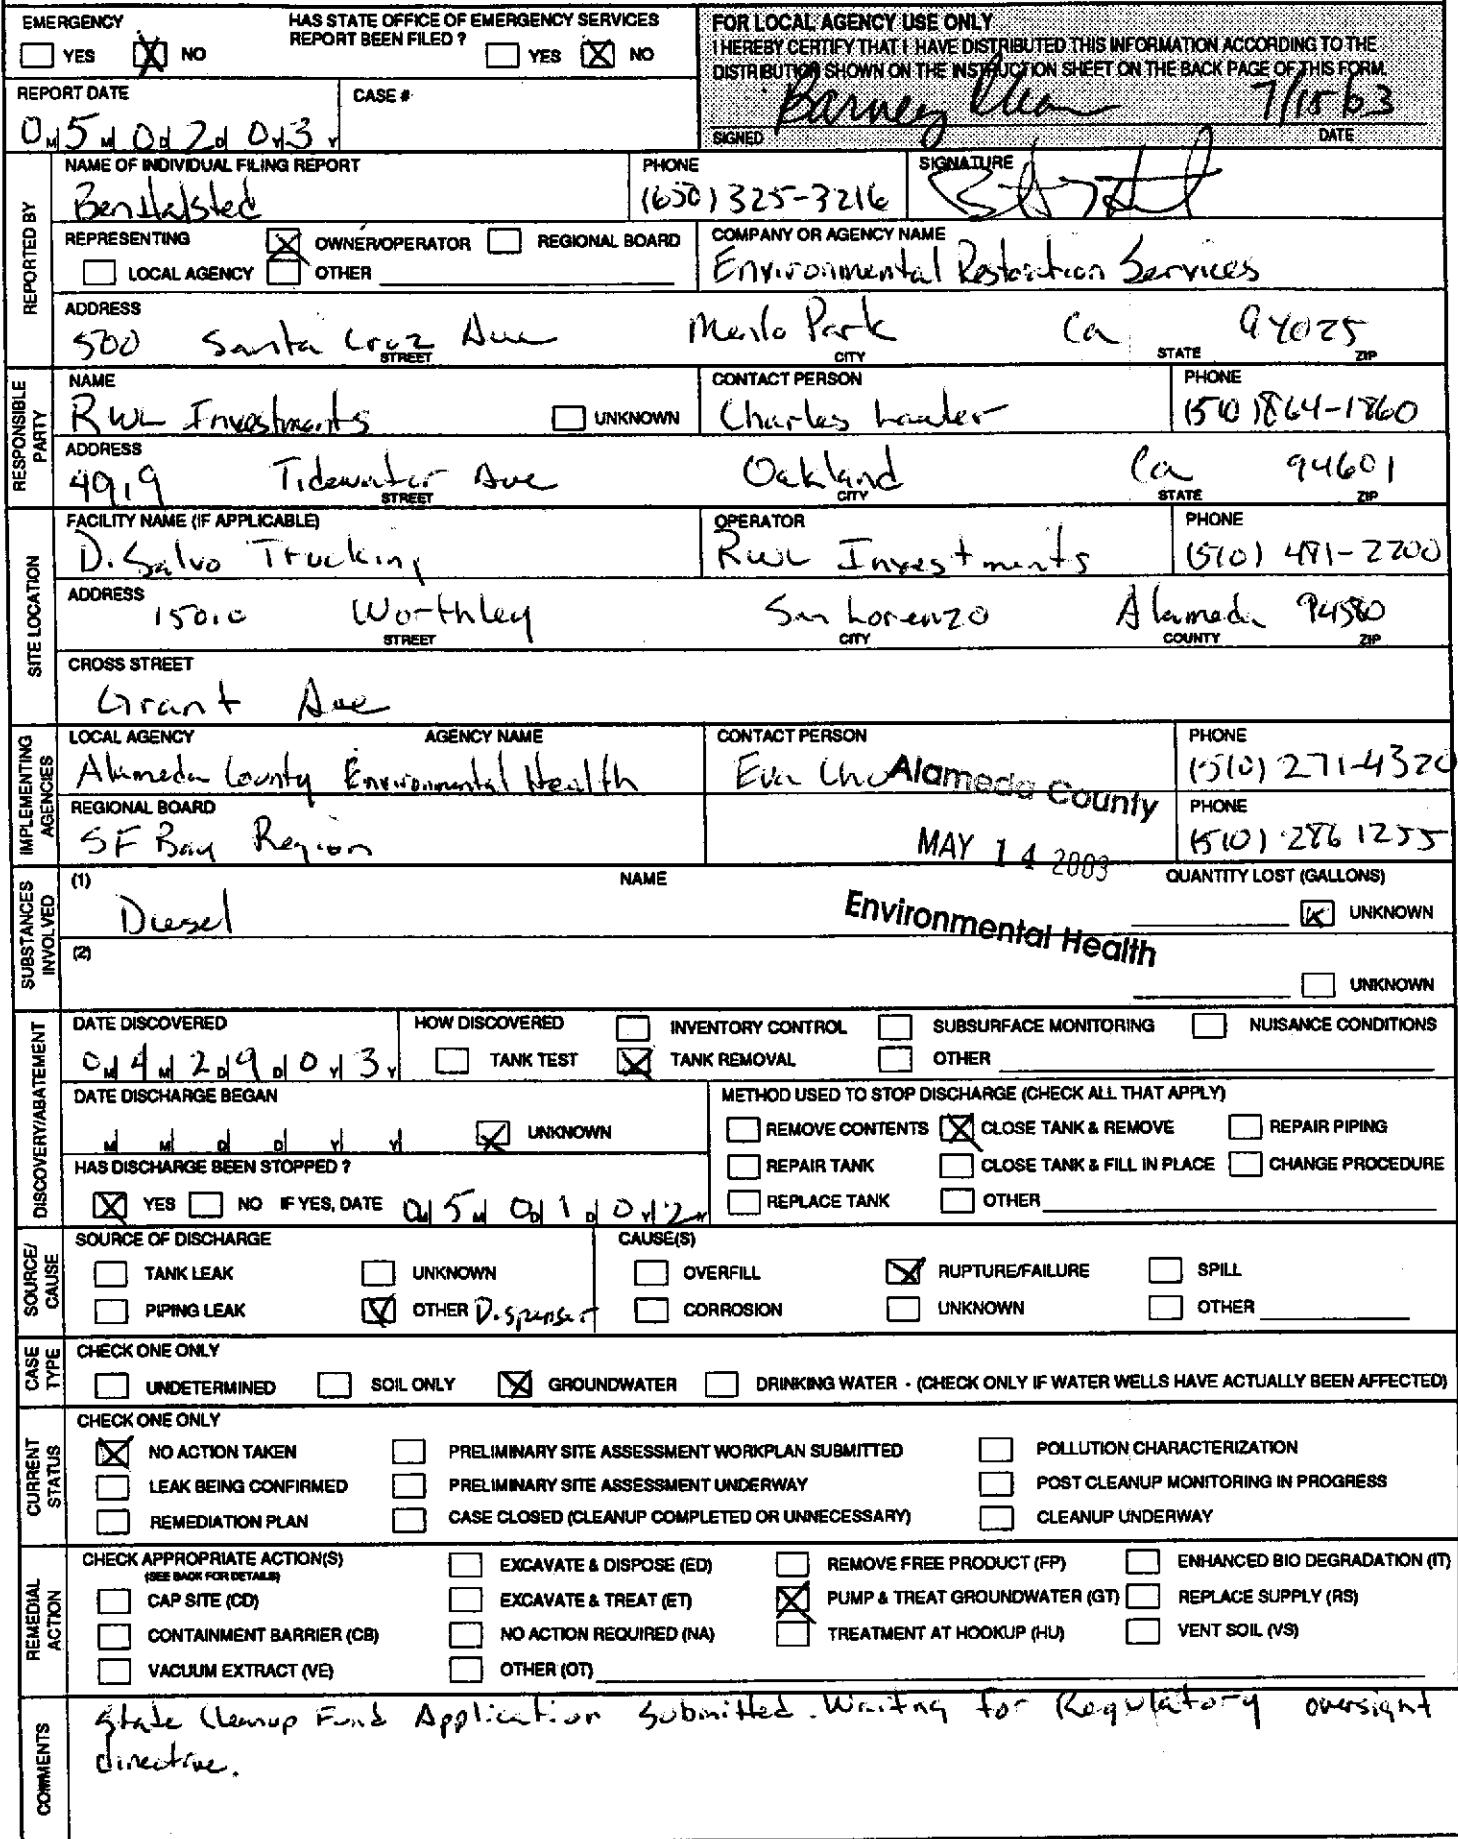 EMERGENCY
YES NO
HAS STATE OFFICE OF EMERGENCY SERVICES
REPORT BEEN FILED ? YES NO
FOR LOCAL AGENCY USE ONLY
I HEREBY CERTIFY THAT I HAVE DISTRIBUTED THIS INFORMATION ACCORDING TO THE
DISTRIBUTION SHOWN ON THE INSTRUCTION SHEET ON THE BACK PAGE OF THIS FORM.
Barney 7/15/03
SIGNED DATE
REPORT DATE
0 M 5 M 0 D 2 D 0 Y 3 Y
CASE #
REPORTED BY
NAME OF INDIVIDUAL FILING REPORT
Ben Halsted
PHONE
(650) 325-3216
SIGNATURE
REPRESENTING OWNER/OPERATOR REGIONAL BOARD
LOCAL AGENCY OTHER
COMPANY OR AGENCY NAME
Environmental Restoration Services
ADDRESS
500 Santa Cruz Ave Menlo Park Ca 94025
STREET CITY STATE ZIP
RESPONSIBLE PARTY
NAME
RWL Investments UNKNOWN
CONTACT PERSON
Charles Lawler
PHONE
(510) 864-1860
ADDRESS
4919 Tidewater Ave Oakland Ca 94601
STREET CITY STATE ZIP
SITE LOCATION
FACILITY NAME (IF APPLICABLE)
D. Salvo Trucking
OPERATOR
RWL Investments
PHONE
(510) 481-2200
ADDRESS
15010 Worthley San Lorenzo Alameda 94580
STREET CITY COUNTY ZIP
CROSS STREET
Grant Ave
IMPLEMENTING AGENCIES
LOCAL AGENCY AGENCY NAME
Alameda County Environmental Health
CONTACT PERSON
Eva Chu
PHONE
(510) 271-4320
REGIONAL BOARD
SF Bay Region
PHONE
(510) 286 1255
Alameda County
MAY 14 2003
Environmental Health
SUBSTANCES INVOLVED
(1) NAME QUANTITY LOST (GALLONS)
Diesel UNKNOWN
(2)
UNKNOWN
DISCOVERY/ABATEMENT
DATE DISCOVERED
0 M 4 M 2 D 9 D 0 Y 3 Y
HOW DISCOVERED INVENTORY CONTROL SUBSURFACE MONITORING NUISANCE CONDITIONS
TANK TEST TANK REMOVAL OTHER
DATE DISCHARGE BEGAN
M M D D Y Y UNKNOWN
METHOD USED TO STOP DISCHARGE (CHECK ALL THAT APPLY)
REMOVE CONTENTS CLOSE TANK & REMOVE REPAIR PIPING
REPAIR TANK CLOSE TANK & FILL IN PLACE CHANGE PROCEDURE
REPLACE TANK OTHER
HAS DISCHARGE BEEN STOPPED ?
YES NO IF YES, DATE 0 M 5 M 0 D 1 D 0 Y 2 Y
SOURCE/ CAUSE
SOURCE OF DISCHARGE
TANK LEAK UNKNOWN
PIPING LEAK OTHER Dispenser
CAUSE(S)
OVERFILL RUPTURE/FAILURE SPILL
CORROSION UNKNOWN OTHER
CASE TYPE
CHECK ONE ONLY
UNDETERMINED SOIL ONLY GROUNDWATER DRINKING WATER - (CHECK ONLY IF WATER WELLS HAVE ACTUALLY BEEN AFFECTED)
CURRENT STATUS
CHECK ONE ONLY
NO ACTION TAKEN PRELIMINARY SITE ASSESSMENT WORKPLAN SUBMITTED POLLUTION CHARACTERIZATION
LEAK BEING CONFIRMED PRELIMINARY SITE ASSESSMENT UNDERWAY POST CLEANUP MONITORING IN PROGRESS
REMEDIATION PLAN CASE CLOSED (CLEANUP COMPLETED OR UNNECESSARY) CLEANUP UNDERWAY
REMEDIAL ACTION
CHECK APPROPRIATE ACTION(S)
(SEE BACK FOR DETAILS)
EXCAVATE & DISPOSE (ED) REMOVE FREE PRODUCT (FP) ENHANCED BIO DEGRADATION (IT)
CAP SITE (CD) EXCAVATE & TREAT (ET) PUMP & TREAT GROUNDWATER (GT) REPLACE SUPPLY (RS)
CONTAINMENT BARRIER (CB) NO ACTION REQUIRED (NA) TREATMENT AT HOOKUP (HU) VENT SOIL (VS)
VACUUM EXTRACT (VE) OTHER (OT)
COMMENTS
State Cleanup Fund Application Submitted. Waiting for Regulatory oversight
directive.